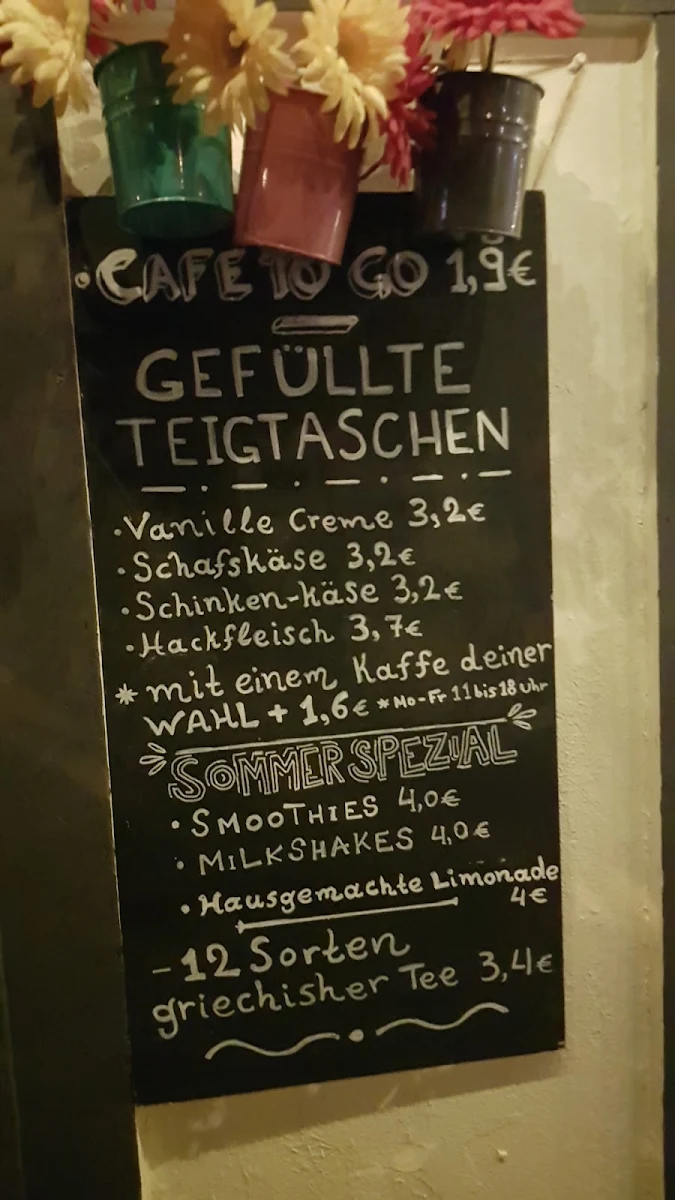 • CAFE TO GO 1,9€
GEFÜLLTE
TEIGTASCHEN
• Vanille Creme 3,2€
• Schafskäse 3,2€
• Schinken-käse 3,2€
• Hackfleisch 3,7€
* mit einem Kaffe deiner
WAHL + 1,6€ * Mo-Fr 11 bis 18 uhr
SOMMER SPEZIAL
• SMOOTHIES 4,0€
• MiLKSHAKES 4,0€
• Hausgemachte Limonade
4€
- 12 Sorten
griechisher Tee 3,4€